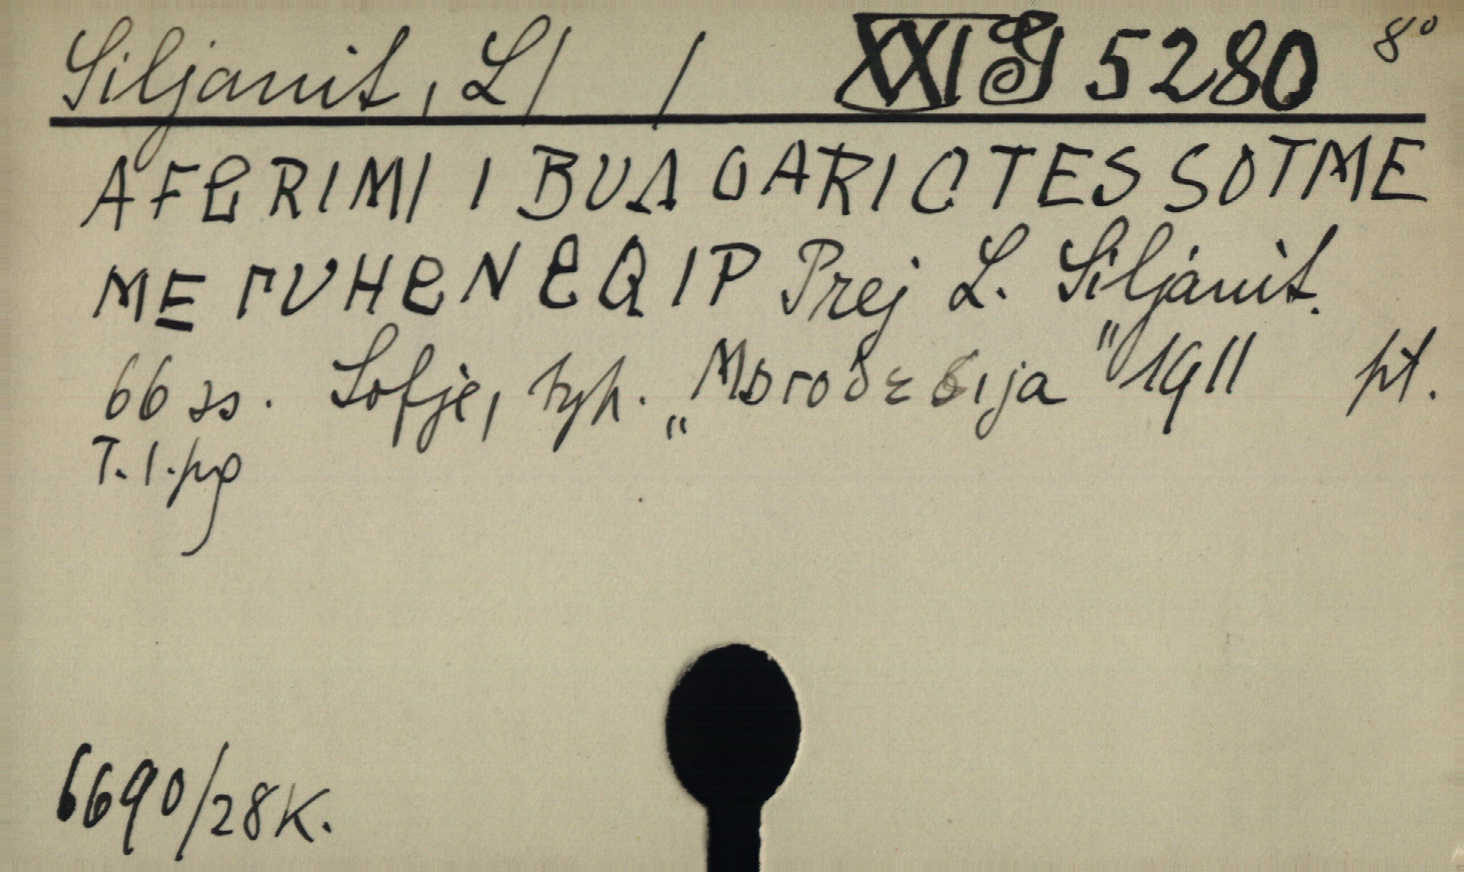 Siljanit, L/ / XXI G 5280 8°
AFERIMI I BULGARICTES SOTME
ME ГUHEN EQIP Prej L. Siljanit.
66 ss. Sofje, typ. „Mbroδεsija" 1911 pt.
T.I.pg
6690/28K.